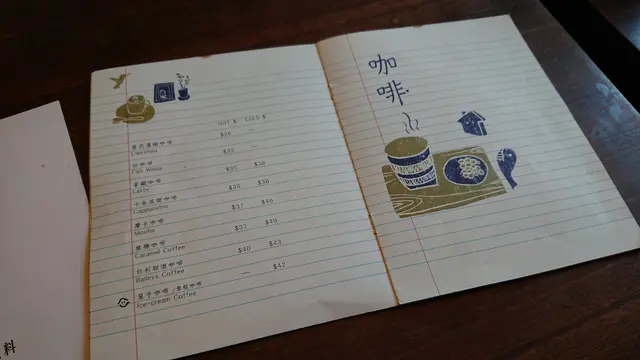 HOT $ COLD $
$26
意式濃縮咖啡
Espresso
$35 —
白咖啡
Flat White
$35 $38
拿鐵咖啡
Latte
$35 $38
卡布其諾咖啡
Cappuccino
$37 $40
摩卡咖啡
Mocha
$37 $40
焦糖咖啡
Caramel Coffee
$40 $43
百利甜酒咖啡
Baileys Coffee
— $42
Ice-cream Coffee
咖
啡
料